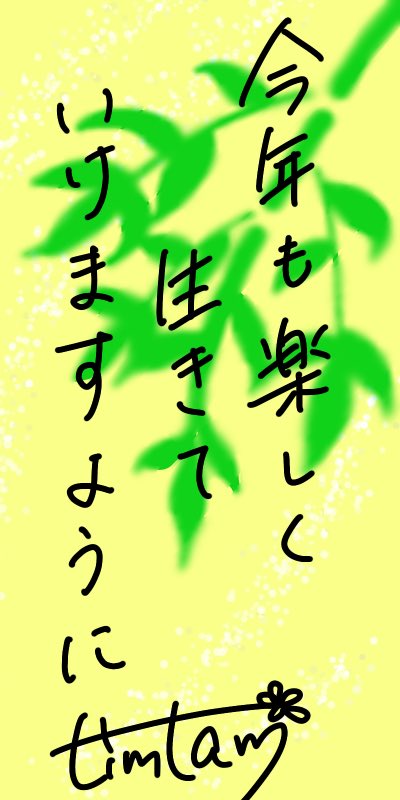 今年も楽しく
生きて
いけますように
timtam